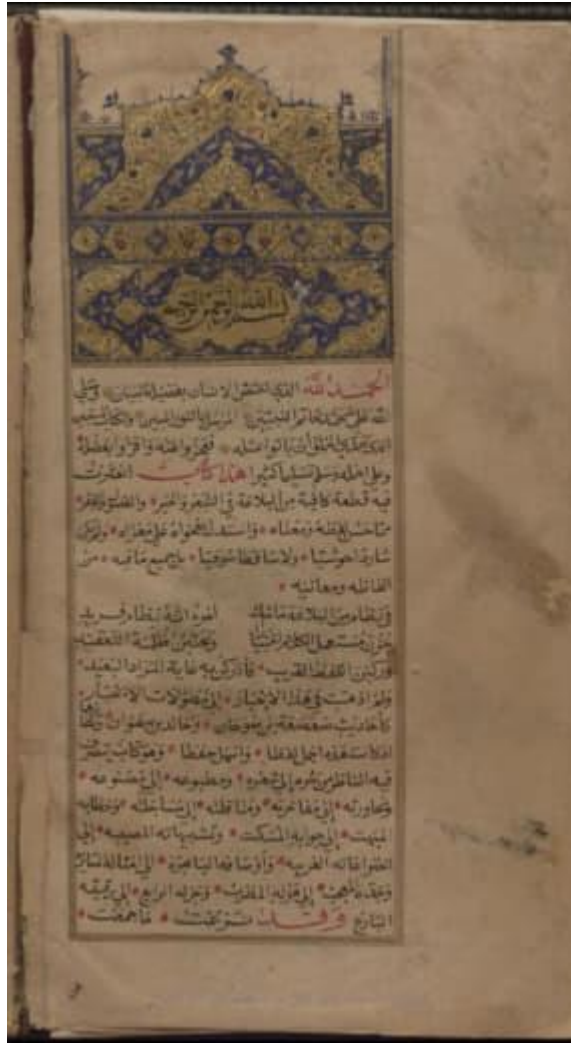 بسم الله الرحمن الرحيم
الحمد لله الذي اختص الانسان بفضيلة البيان وصلى
الله على محمد خاتم النبيين المرسل بالنور المبين والكتاب
الذي تحدى الخلق أن يأتوا بمثله فعجزوا عنه واقروا بفضله
وعلى اهله وسلم تسليما كثيرا هذا كتاب اخترت
فيه قطعة كافية من البلاغة في الشعر والخبر والفصول والفقر
مما حسن لفظه ومعناه واستدل بفحواه على مغزاه ولم يكن
شاردا حوشيا ولا ساقطا سوقيا بل جميع ما فيه من
الفاظه ومعانيه
في نظام من البلاغة ما شك امرؤ انه نظام فريد
حزن مستعمل الكلام اختيارا وتجنبن ظلمة التعقيد
وركبن اللفظ القريب فأدركن به غاية المراد البعيد
ولم اذهب في هذا الاختيار إلى مطولات الاخبار
كأحاديث صعصعة بن صوحان وخالد بن صفوان
اذ كانت هذه اجمل لفظا واسهل حفظا وهو كتاب يتصرف
فيه الناظر من نثره إلى شعره ومطبوعه إلى مصنوعه
ومحاورته إلى مفاخرته ومناقلته إلى مساجلته وخطابه
المبهت إلى جوابه المسكت وتشبيهاته المصيبه إلى
اختراعاته الغريبه وأوصافه الباهرة إلى امثاله السائرة
وجده المعجب إلى هزله المطرب وجزله الرائع إلى رقيقه
البارع وقد نزعت فيما جمعت